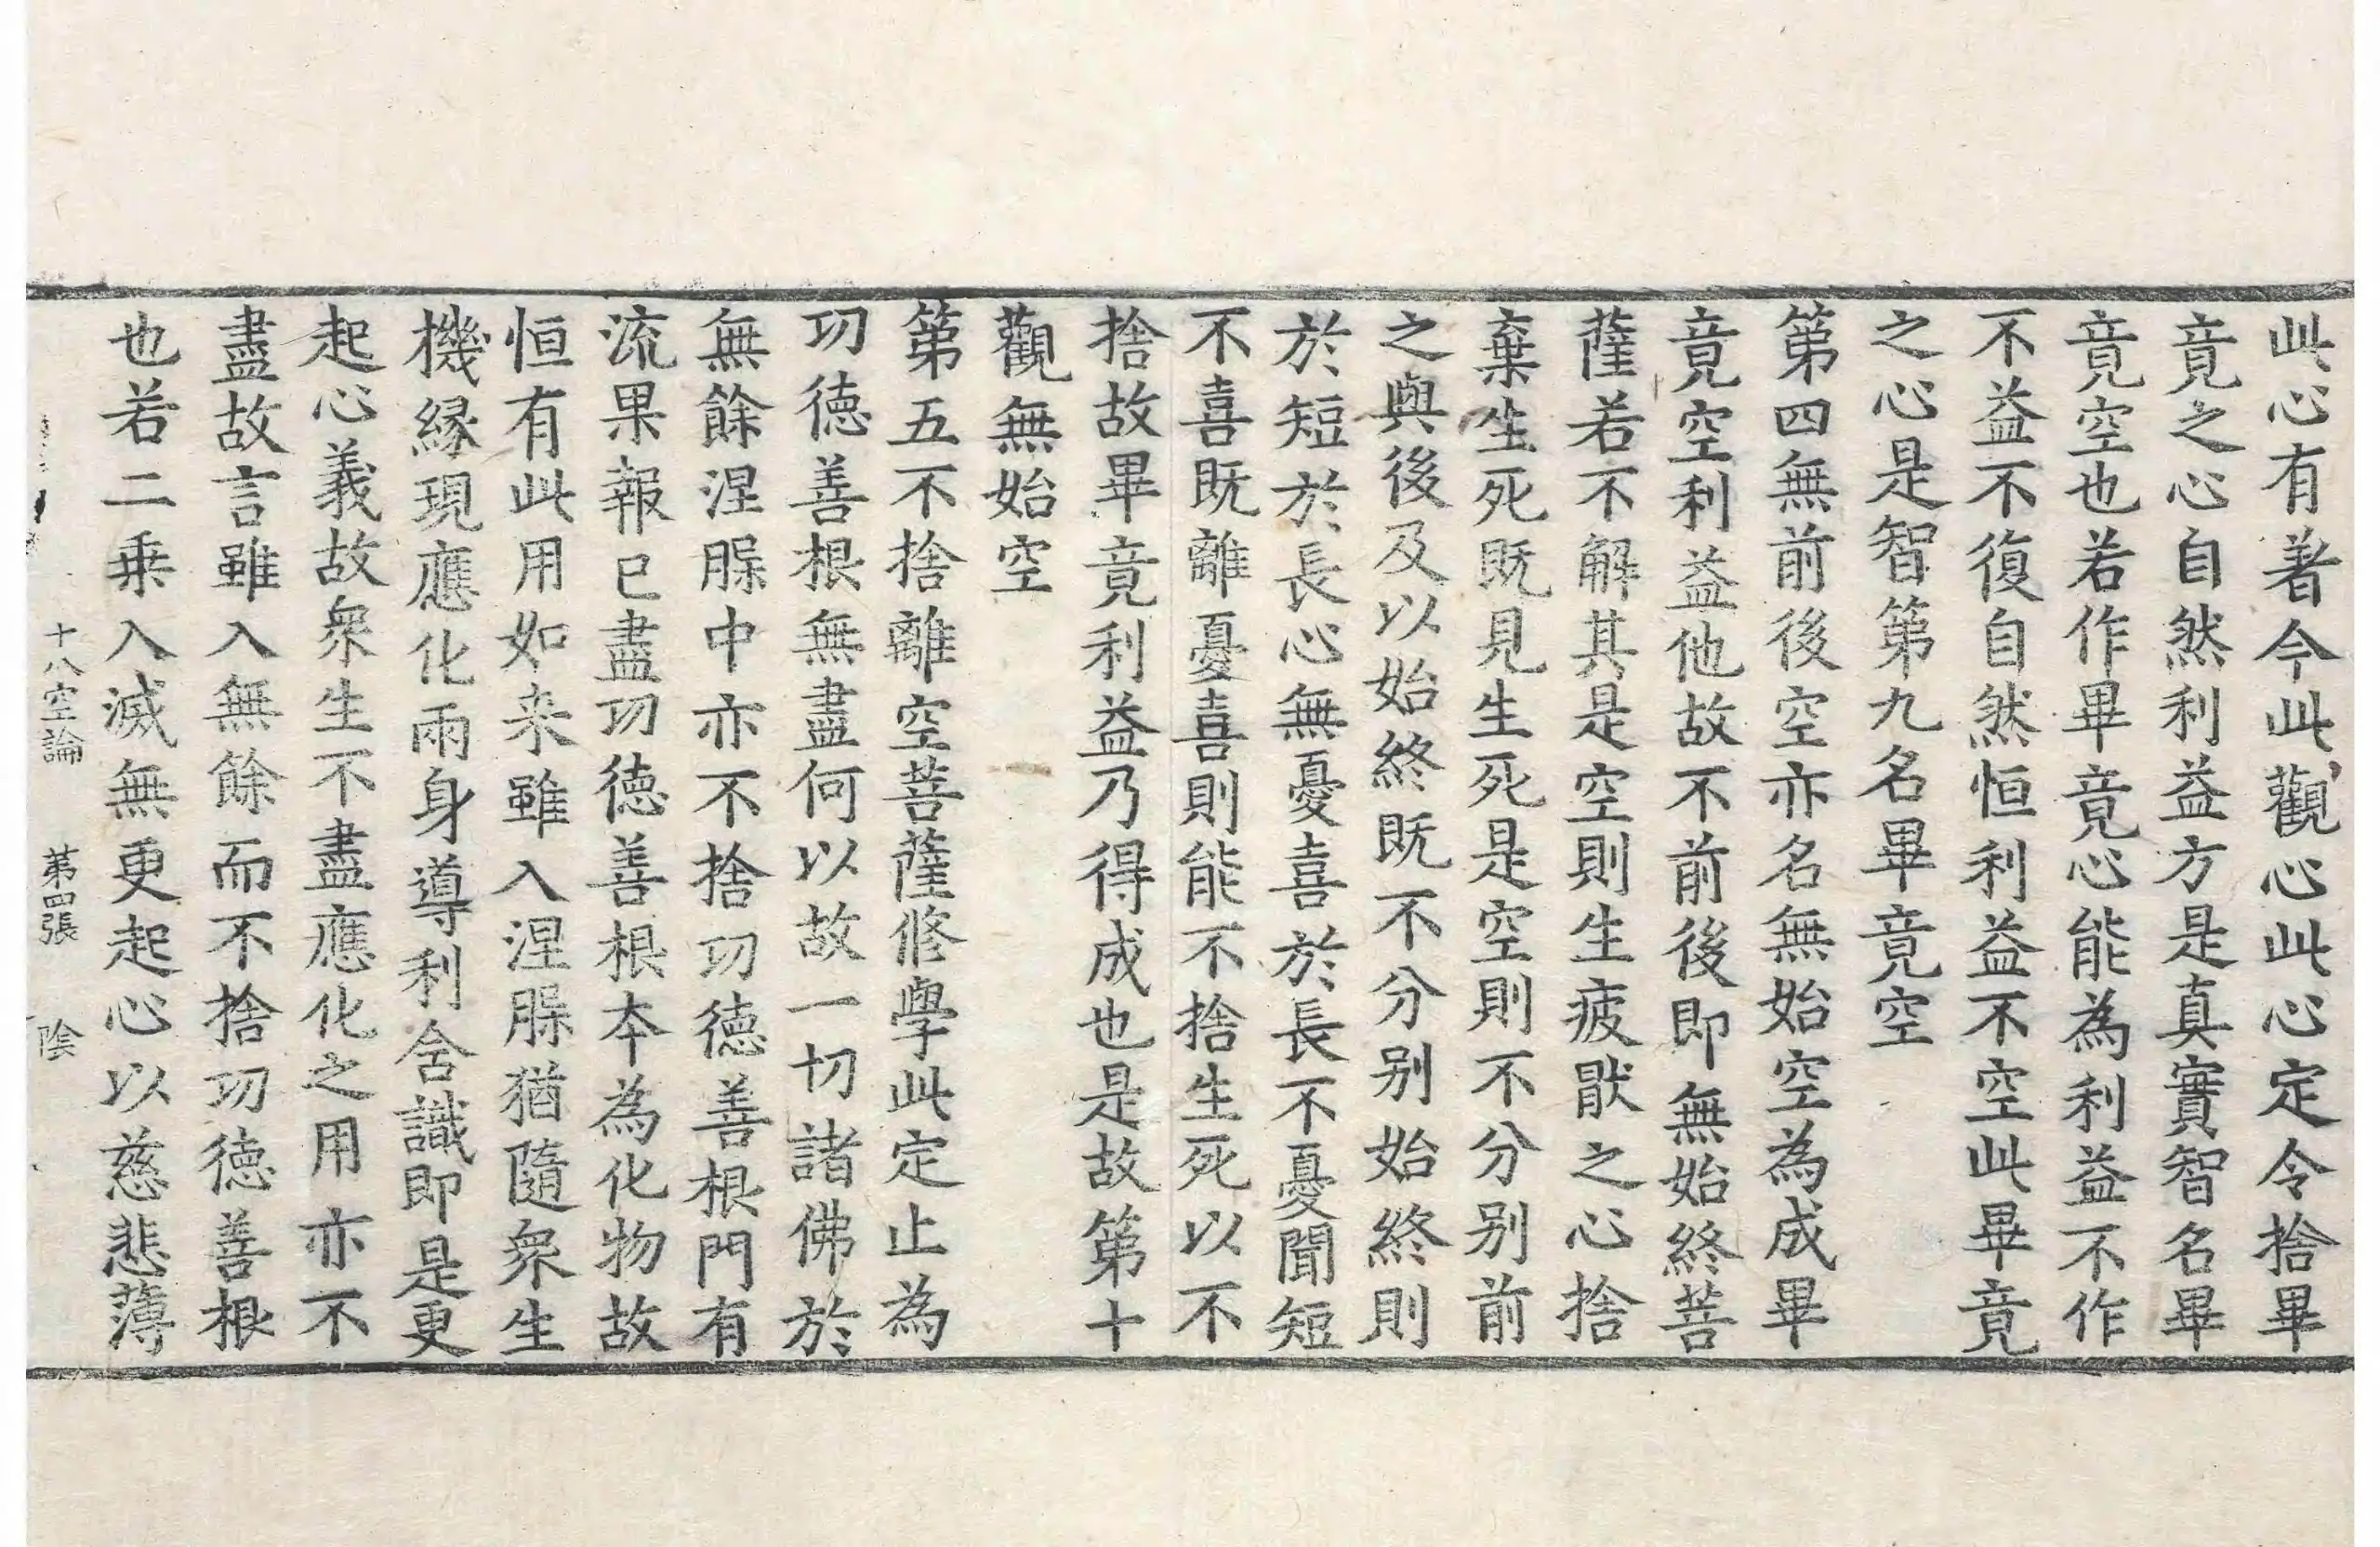 此心有著今此觀心此心定令捨畢
竟之心自然利益方是真實智名畢
竟空也若作畢竟心能為利益不作
不益不復自然恒利益不空此畢竟
之心是智第九名畢竟空
第四無前後空亦名無始空為成畢
竟空利益他故不前後即無始終菩
薩若不解其是空則生疲猒之心捨
棄生死既見生死是空則不分別前
之與後及以始終既不分别始終則
於短於長心無憂喜於長不憂聞短
不喜既離憂喜則能不捨生死以不
捨故畢竟利益乃得成也是故第十
觀無始空
第五不捨離空菩薩修學此定止為
功德善根無盡何以故一切諸佛於
無餘涅脲中亦不捨功德善根門有
流果報已盡功德善根本為化物故
恒有此用如来雖入涅脲猶隨眾生
機縁現應化兩身導利含識即是更
起心義故眾生不盡應化之用亦不
盡故言雖入無餘而不捨功德善根
也若二乗入滅無更起心以慈悲薄
十八空論 第四張 陰